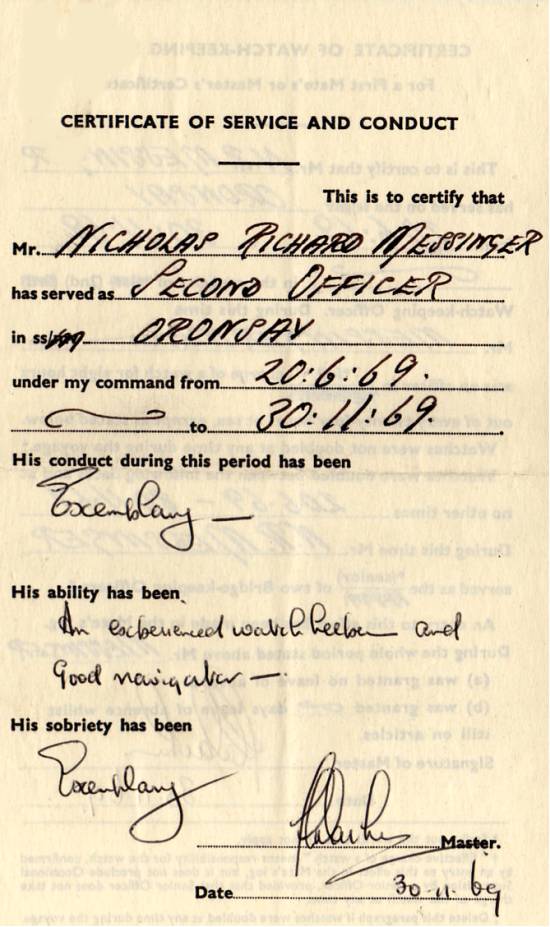 CERTIFICATE OF SERVICE AND CONDUCT
This is to certify that
Mr. NICHOLAS RICHARD MESSINGER
has served as SECOND OFFICER
in ss/ ORONSAY
under my command from 20:6:69.
to 30:11:69.
His conduct during this period has been
Exemplary —
His ability has been
An experienced watch keeper and
Good navigator —.
His sobriety has been
Exemplary
Master.
Date 30.11.69